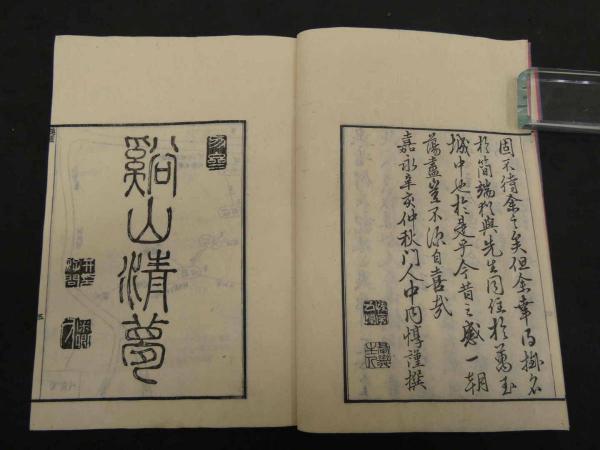 固不待余言矣但余幸得掛名
於簡端猶與先生同住於萬玉
城中也於是乎今昔之感一朝
蕩盡豈不深自喜哉
嘉永辛亥仲秋門人中内惇謹撰
谿山清夢